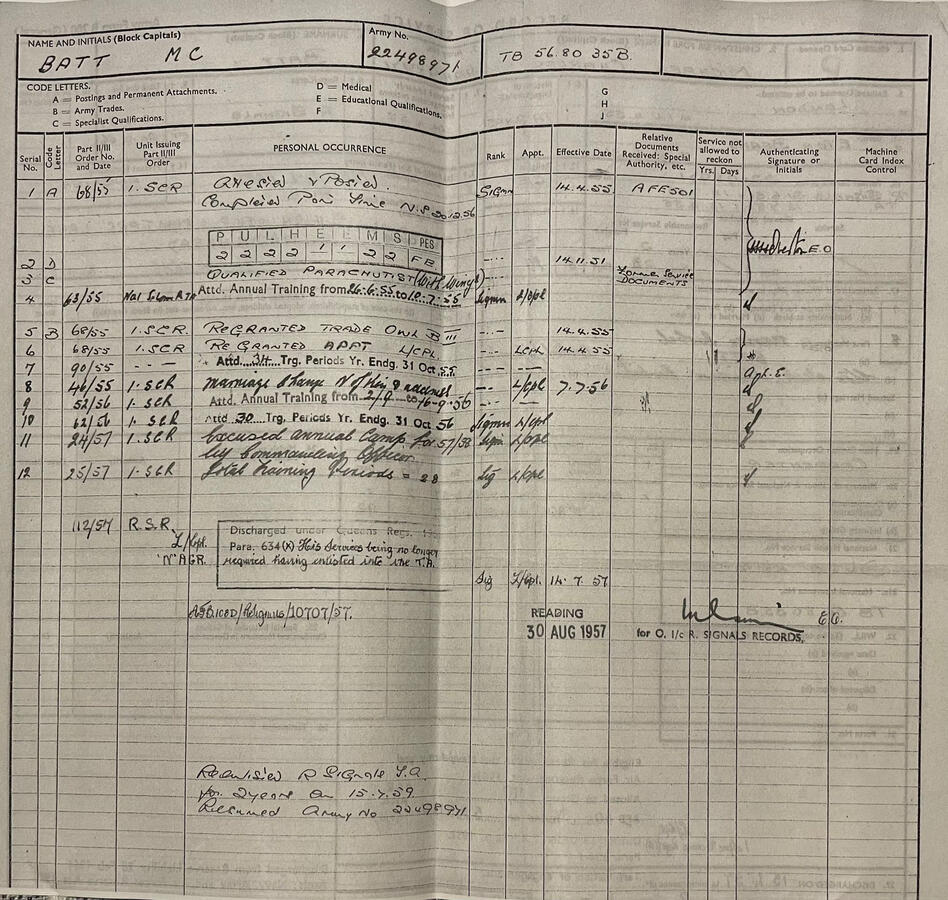 NAME AND INITIALS (Block Capitals)
BATT MC
Army No.
22498971
TB 56.80 35B.
CODE LETTERS.
A = Postings and Permanent Attachments.
B = Army Trades.
C = Specialist Qualifications.
D = Medical
E = Educational Qualifications.
F
G
H
J
Serial No. Code Letter Part II/III Order No. and Date Unit Issuing Part II/III Order PERSONAL OCCURRENCE Rank Appt. Effective Date Relative Documents Received: Special Authority, etc. Service not allowed to reckon Yrs. Days Authenticating Signature or Initials Machine Card Index Control
1 A 68/55 1. SCR & Posted. Sigmn 14.4.55 AFE501
Completed Part Time N.S 20.12.56
P U L H E E M S PES
2 2 2 2 1 1 2 2 FE
E.O
2 D 14.11.51
3 C QUALIFIED PARACHUTIST (With Wings) Former Service DOCUMENTS
4 63/55 Attd. Annual Training from 26.6.55 to 10.7.55 Sigmn L/Cpl
5 B 68/55 1. SCR REGRANTED TRADE OWL B III 14.4.55
6 68/55 1. SCR REGRANTED APPT L/CPL LCPL 14.4.55
7 90/55 Attd. 34 Trg. Periods Yr. Endg. 31 Oct 55
8 46/55 1. SCR marriage & change N of Kin & L/Cpl 7.7.56
9 52/56 1. SCR Attd. Annual Training from 2/9 to 16.9.56
10 62/56 1. SCR Attd 30 Trg. Periods Yr. Endg. 31 Oct 56 Sigmn L/Cpl
11 24/57 1. SCR Excused annual Camp for 57/58 L/Cpl
by Commanding Officer
12 25/57 1. SCR Total Training Periods = 28 Sig L/Cpl
112/57 R.S.R. Discharged under Queens Regs.
L/Cpl. Para. 634(X) His Services being no longer
"N" AGR. required having enlisted into the T.A.
Sig L/Cpl. 14.7.57
/10707/57.
READING
30 AUG 1957
E.O.
for O. I/c R. SIGNALS RECORDS,
R Signals T.A.
for 2 years on 15.7.59
Resumed Army No 22498971